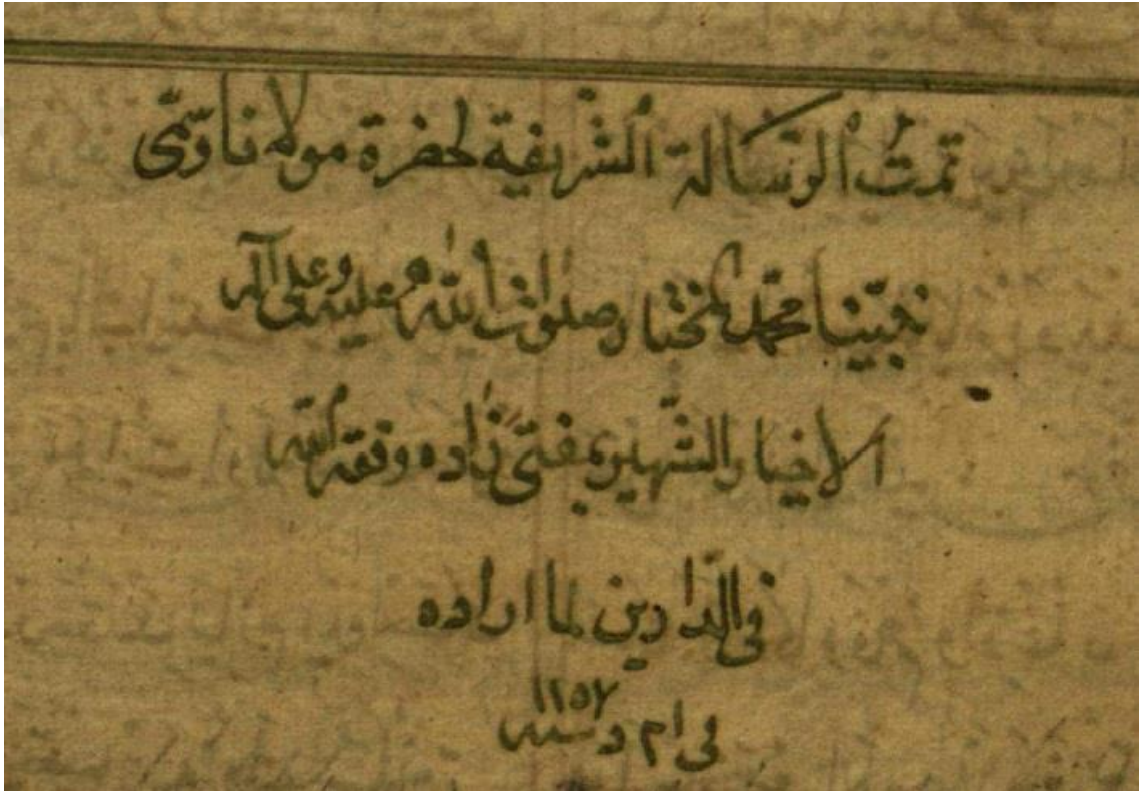 تمت الرسالة الشريفة لحضرة مولانا وسمى
نبينا محمد المختار صلوات الله عليه وعلى آله
الاخيار الشهير بمفتى زاده وفقه الله
فى الدارين لما اراده
فى ام د سنه ١٢٥٧